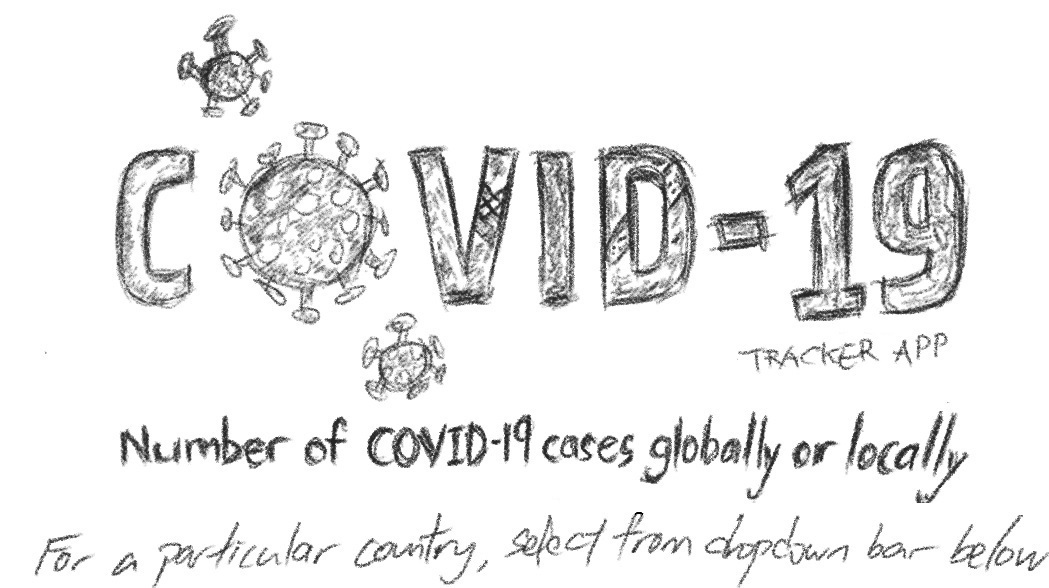 COVID-19
TRACKER APP
Number of COVID-19 cases globally or locally
For a particular country, select from dropdown bar below